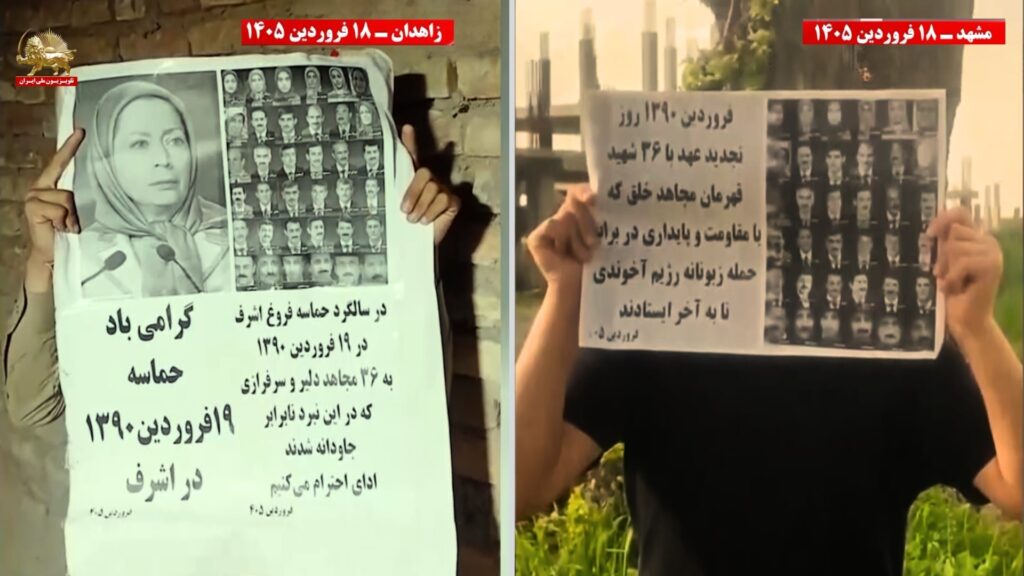 زاهدان ــ ۱۸ فروردین ۱۴۰۵
تلویزیون ملی ایران
در سالگرد حماسه فروغ اشرف
در ۱۹ فروردین ۱۳۹۰
به ۳۶ مجاهد دلیر و سرفرازی
که در این نبرد نابرابر
جاودانه شدند
ادای احترام می‌کنیم
فروردین ۴۰۵
گرامی باد
حماسه
۱۹فروردین۱۳۹۰
در اشرف
فروردین ۴۰۵
مشهد ــ ۱۸ فروردین ۱۴۰۵
فروردین ۱۳۹۰ روز
تجدید عهد با ۳۶ شهید
قهرمان مجاهد خلق که
با مقاومت و پایداری در برابر
حمله زبونانه رژیم آخوندی
تا به آخر ایستادند
فروردین ۴۰۵